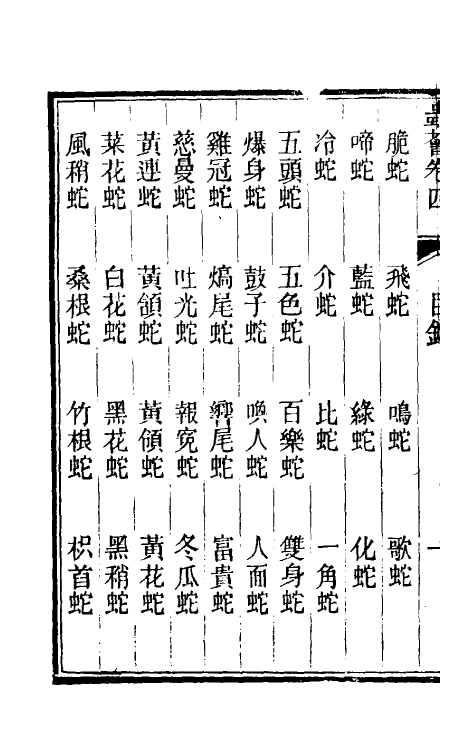 蟲薈卷四 目錄 一
脆蛇 飛蛇 鳴蛇 歌蛇
啼蛇 藍蛇 綠蛇 化蛇
冷蛇 介蛇 比蛇 一角蛇
五頭蛇 五色蛇 百樂蛇 雙身蛇
爆身蛇 鼓子蛇 喚人蛇 人面蛇
雞冠蛇 熇尾蛇 響尾蛇 富貴蛇
慈曼蛇 吐光蛇 報寃蛇 冬瓜蛇
黃連蛇 黃頷蛇 黃領蛇 黃花蛇
菜花蛇 白花蛇 黑花蛇 黑稍蛇
風稍蛇 桑根蛇 竹根蛇 枳首蛇